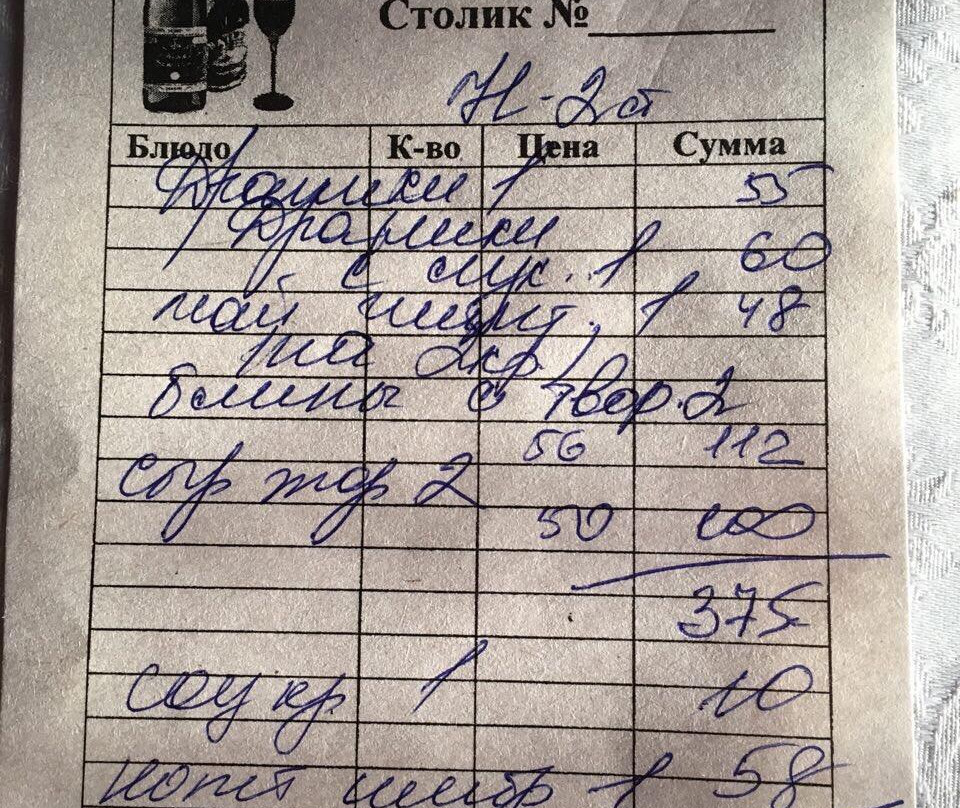 Столик №
Н-2 ст
Блюдо К-во Цена Сумма
Драники 1 55
Драники
с лук. 1 60
чай имбит. 1 48
на 2кр)
блины с твор. 2
56 112
сыр жар 2
50 100
375
соу кр 1 10
имбр 1 58